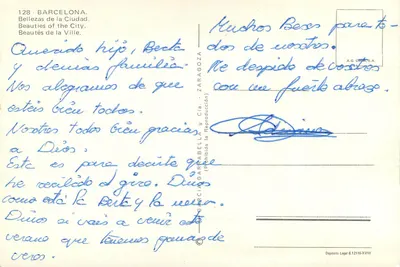 128 - BARCELONA.
Bellezas de la Ciudad.
Beauties of the City.
Beautés de la Ville.
Querido hijo, Berta
y demás familia.
Nos alegramos de que
estéis bien todos.
Nosotros todos bién gracias
a Dios.
Esta es para decirte que
he recibido el giro. Dinos
como está la Berta y la nena.
Dinos si vais a venir este
verano que tenemos ganas de
veros.
Muchos Besos para to-
dos de nosotros.
Me despido de vosotros
con un fuerte abrazo.
ZARAGOZA
(Prohibida la Reproducción)